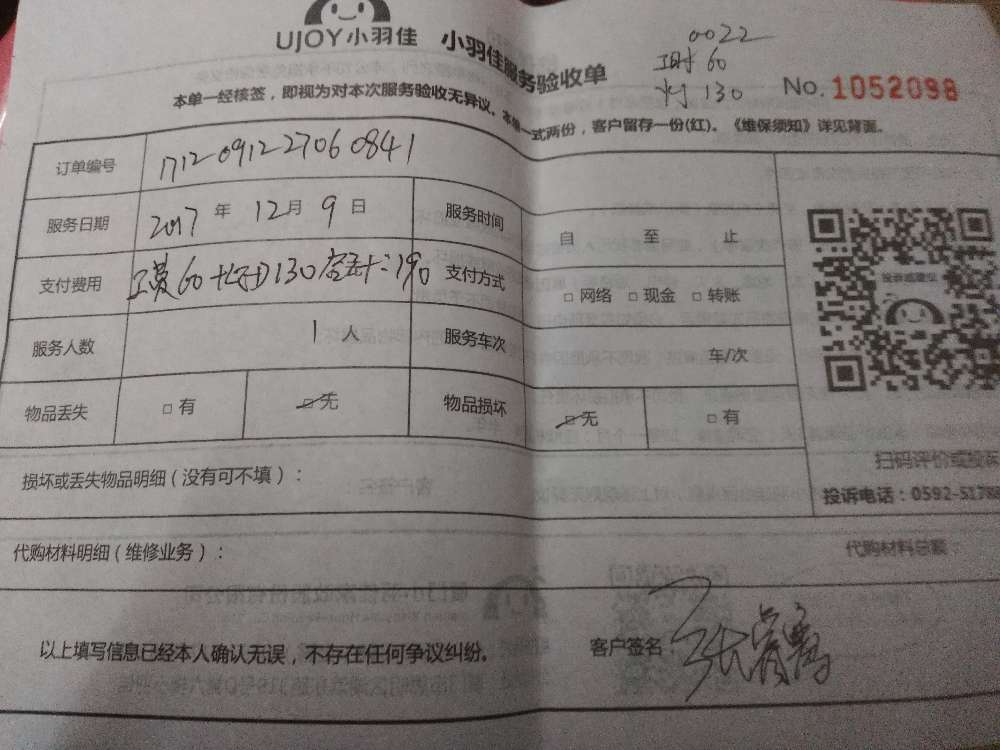 UJOY小羽佳 小羽佳服务验收单
0022
工时60
灯130
No. 1052098
本单一经核签，即视为对本次服务验收无异议。本单一式两份，客户留存一份(红)。《维保须知》详见背面。
订单编号 1712091227060841
服务日期 2017年12月9日 服务时间 自 至 止
支付费用 工费60+灯130 合计=190 支付方式 □网络 □现金 □转账
服务人数 1人 服务车次 车/次
物品丢失 □有 □无 物品损坏 □无 □有
扫码评价或投诉
投诉电话：0592-5178
损坏或丢失物品明细（没有可不填）：
代购材料明细（维修业务）： 代购材料总额
以上填写信息已经本人确认无误，不存在任何争议纠纷。 客户签名： 张